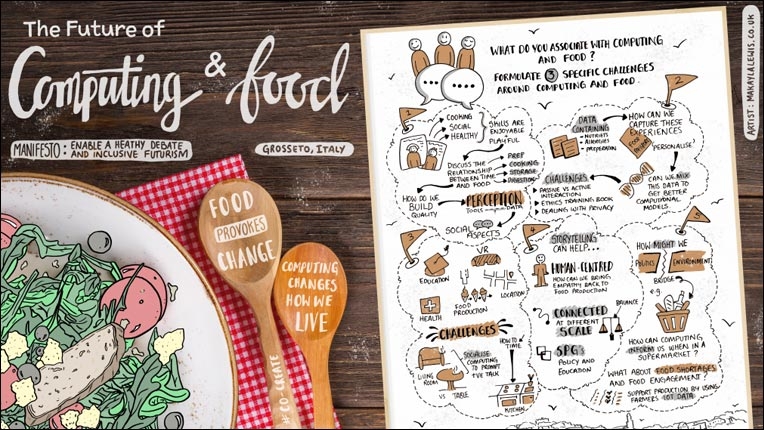 The Future of
Computing & food
MANIFESTO : ENABLE A HEATHY DEBATE
AND INCLUSIVE FUTURISM
GROSSETO, ITALY
FOOD
PROVOKES
CHANGE
#CO-CREATE
COMPUTING
CHANGES
HOW WE
LIVE
ARTIST: MAKAYLALEWIS.CO.UK
WHAT DO YOU ASSOCIATE WITH COMPUTING
AND FOOD?
FORMULATE 3 SPECIFIC CHALLENGES
AROUND COMPUTING AND FOOD.
1
COOKING
SOCIAL
HEALTHY
SKILLS ARE
ENJOYABLE
PLAYFUL
DISCUSS THE
RELATIONSHIP
BETWEEN TIME
AND FOOD
PREP
COOKING
STORAGE
DIGESTION
HOW DO WE
BUILD
QUALITY
PERCEPTION
TOOLS
DATA
2
DATA
CONTAINING
- NUTRIENTS
- ALLERGIES
- PREPARATION
HOW CAN WE
CAPTURE THESE
EXPERIENCES
FOOD
PERSONALISE
CHALLENGES
PASSIVE VS ACTIVE
INTERACTION
ETHICS TRAINING BOOK
DEALING WITH PRIVACY
CAN WE MIX
THIS DATA TO
GET BETTER
COMPUTIONAL
MODELS.
3
SOCIAL
ASPECTS
VR
EDUCATION
FOOD
PRODUCTION
LOCATION
HEALTH
CHALLENGES
LIVING
ROOM
VS
TABLE
SOCIALISE
COMPUTING
TO PROMPT
TALK
HOW TO
TIME
KITCHEN
4
STORYTELLING
CAN HELP...
HUMAN-CENTRED
HOW CAN WE BRING
EMPATHY BACK TO
FOOD PRODUCTION
CONNECTED
AT DIFFERENT
SCALE
BALANCE
SPG's
POLICY AND
EDUCATION
5
HOW MIGHT WE
POLITICS
ENVIRONMENT
BRIDGE
e.g
HOW CAN COMPUTING
INFORM US WHEN IN A
SUPERMARKET?
WHAT ABOUT FOOD SHORTAGES
AND FOOD ENGAGEMENT?
SUPPORT PRODUCTION BY USING
FARMERS IOT DATA